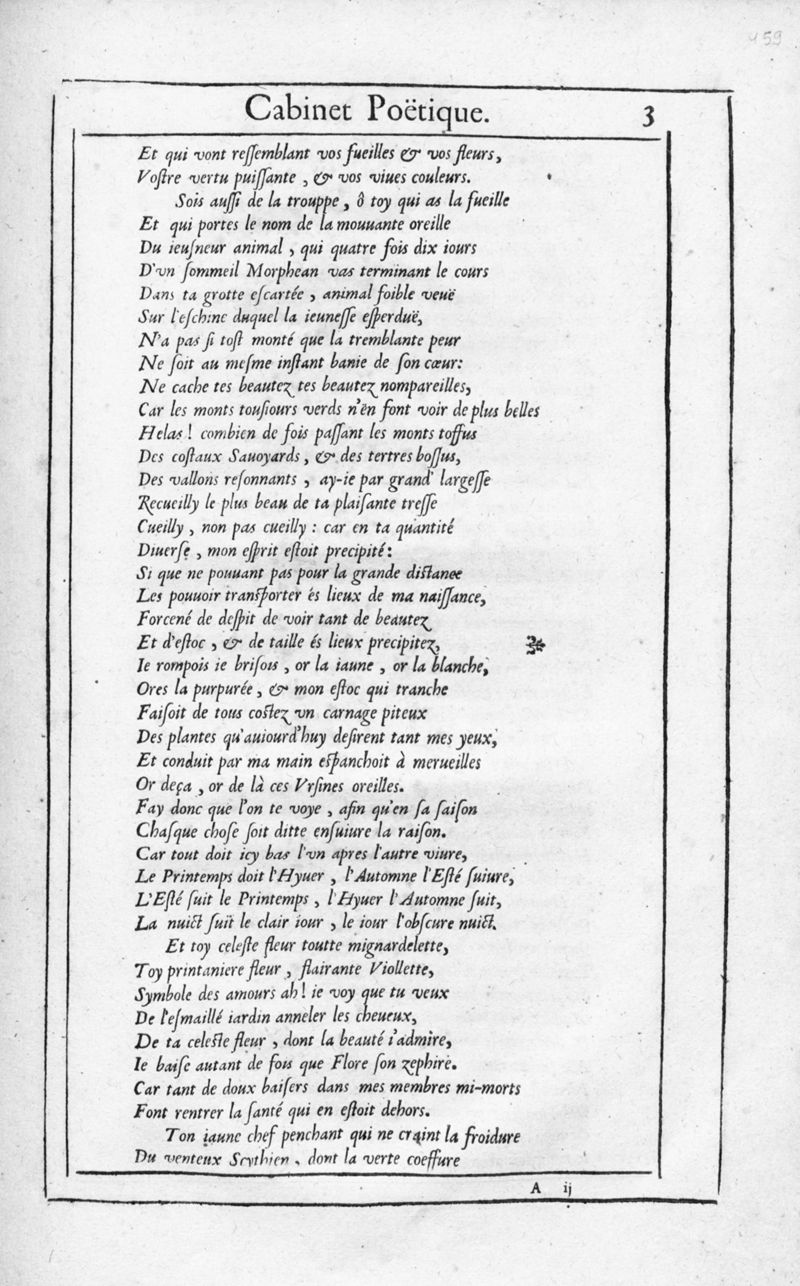 459
Cabinet Poëtique. 3
Et qui vont reſſemblant vos fueilles & vos fleurs,
Voſtre vertu puiſſante , & vos viues couleurs.
Sois auſſi de la trouppe, ô toy qui as la fueille
Et qui portes le nom de la mouuante oreille
Du ieuſneur animal , qui quatre fois dix iours
D'vn ſommeil Morphean vas terminant le cours
Dans ta grotte eſcartée , animal foible veuë
Sur l'eſchine duquel la ieuneſſe eſperduë,
N'a pas ſi toſt monté que la tremblante peur
Ne ſoit au meſme inſtant banie de ſon cœur:
Ne cache tes beautez tes beautez nompareilles,
Car les monts touſiours verds n'ën font voir de plus belles
Helas ! combien de fois paſſant les monts toffus
Des coſtaux Sauoyards, & des tertres boſſus,
Des vallons reſonnants , ay-ie par grand' largeſſe
Recueilly le plus beau de ta plaiſante treſſe
Cueilly , non pas cueilly : car en ta quantité
Diuerſe , mon eſprit eſtoit precipité:
Si que ne pouuant pas pour la grande diſtance
Les pouuoir tranſporter és lieux de ma naiſſance,
Forcené de deſpit de voir tant de beautez
Et d'eſtoc , & de taille és lieux precipitez,
Ie rompois ie briſois , or la iaune , or la blanche,
Ores la purpurée, & mon eſtoc qui tranche
Faiſoit de tous coſtez vn carnage piteux
Des plantes qu'auiourd'huy deſirent tant mes yeux,
Et conduit par ma main eſpanchoit à merueilles
Or deça , or de là ces Vrſines oreilles.
Fay donc que l'on te voye , afin qu'en ſa ſaiſon
Chaſque choſe ſoit ditte enſuiure la raiſon.
Car tout doit icy bas l'vn apres l'autre viure,
Le Printemps doit l'Hyuer , l'Automne l'Eſté ſuiure,
L'Eſté ſuit le Printemps , l'Hyuer l'Automne ſuit,
La nuict ſuit le clair iour , le iour l'obſcure nuict.
Et toy celeſte fleur toutte mignardelette,
Toy printaniere fleur , flairante Viollette,
Symbole des amours ah ! ie voy que tu veux
De l'eſmaillé iardin anneler les cheueux,
De ta celeſte fleur , dont la beauté i'admire,
Ie baiſe autant de fois que Flore ſon zephire.
Car tant de doux baiſers dans mes membres mi-morts
Font rentrer la ſanté qui en eſtoit dehors.
Ton iaune chef penchant qui ne craint la froidure
Du venteux Scythien , dont la verte coeffure
A ij